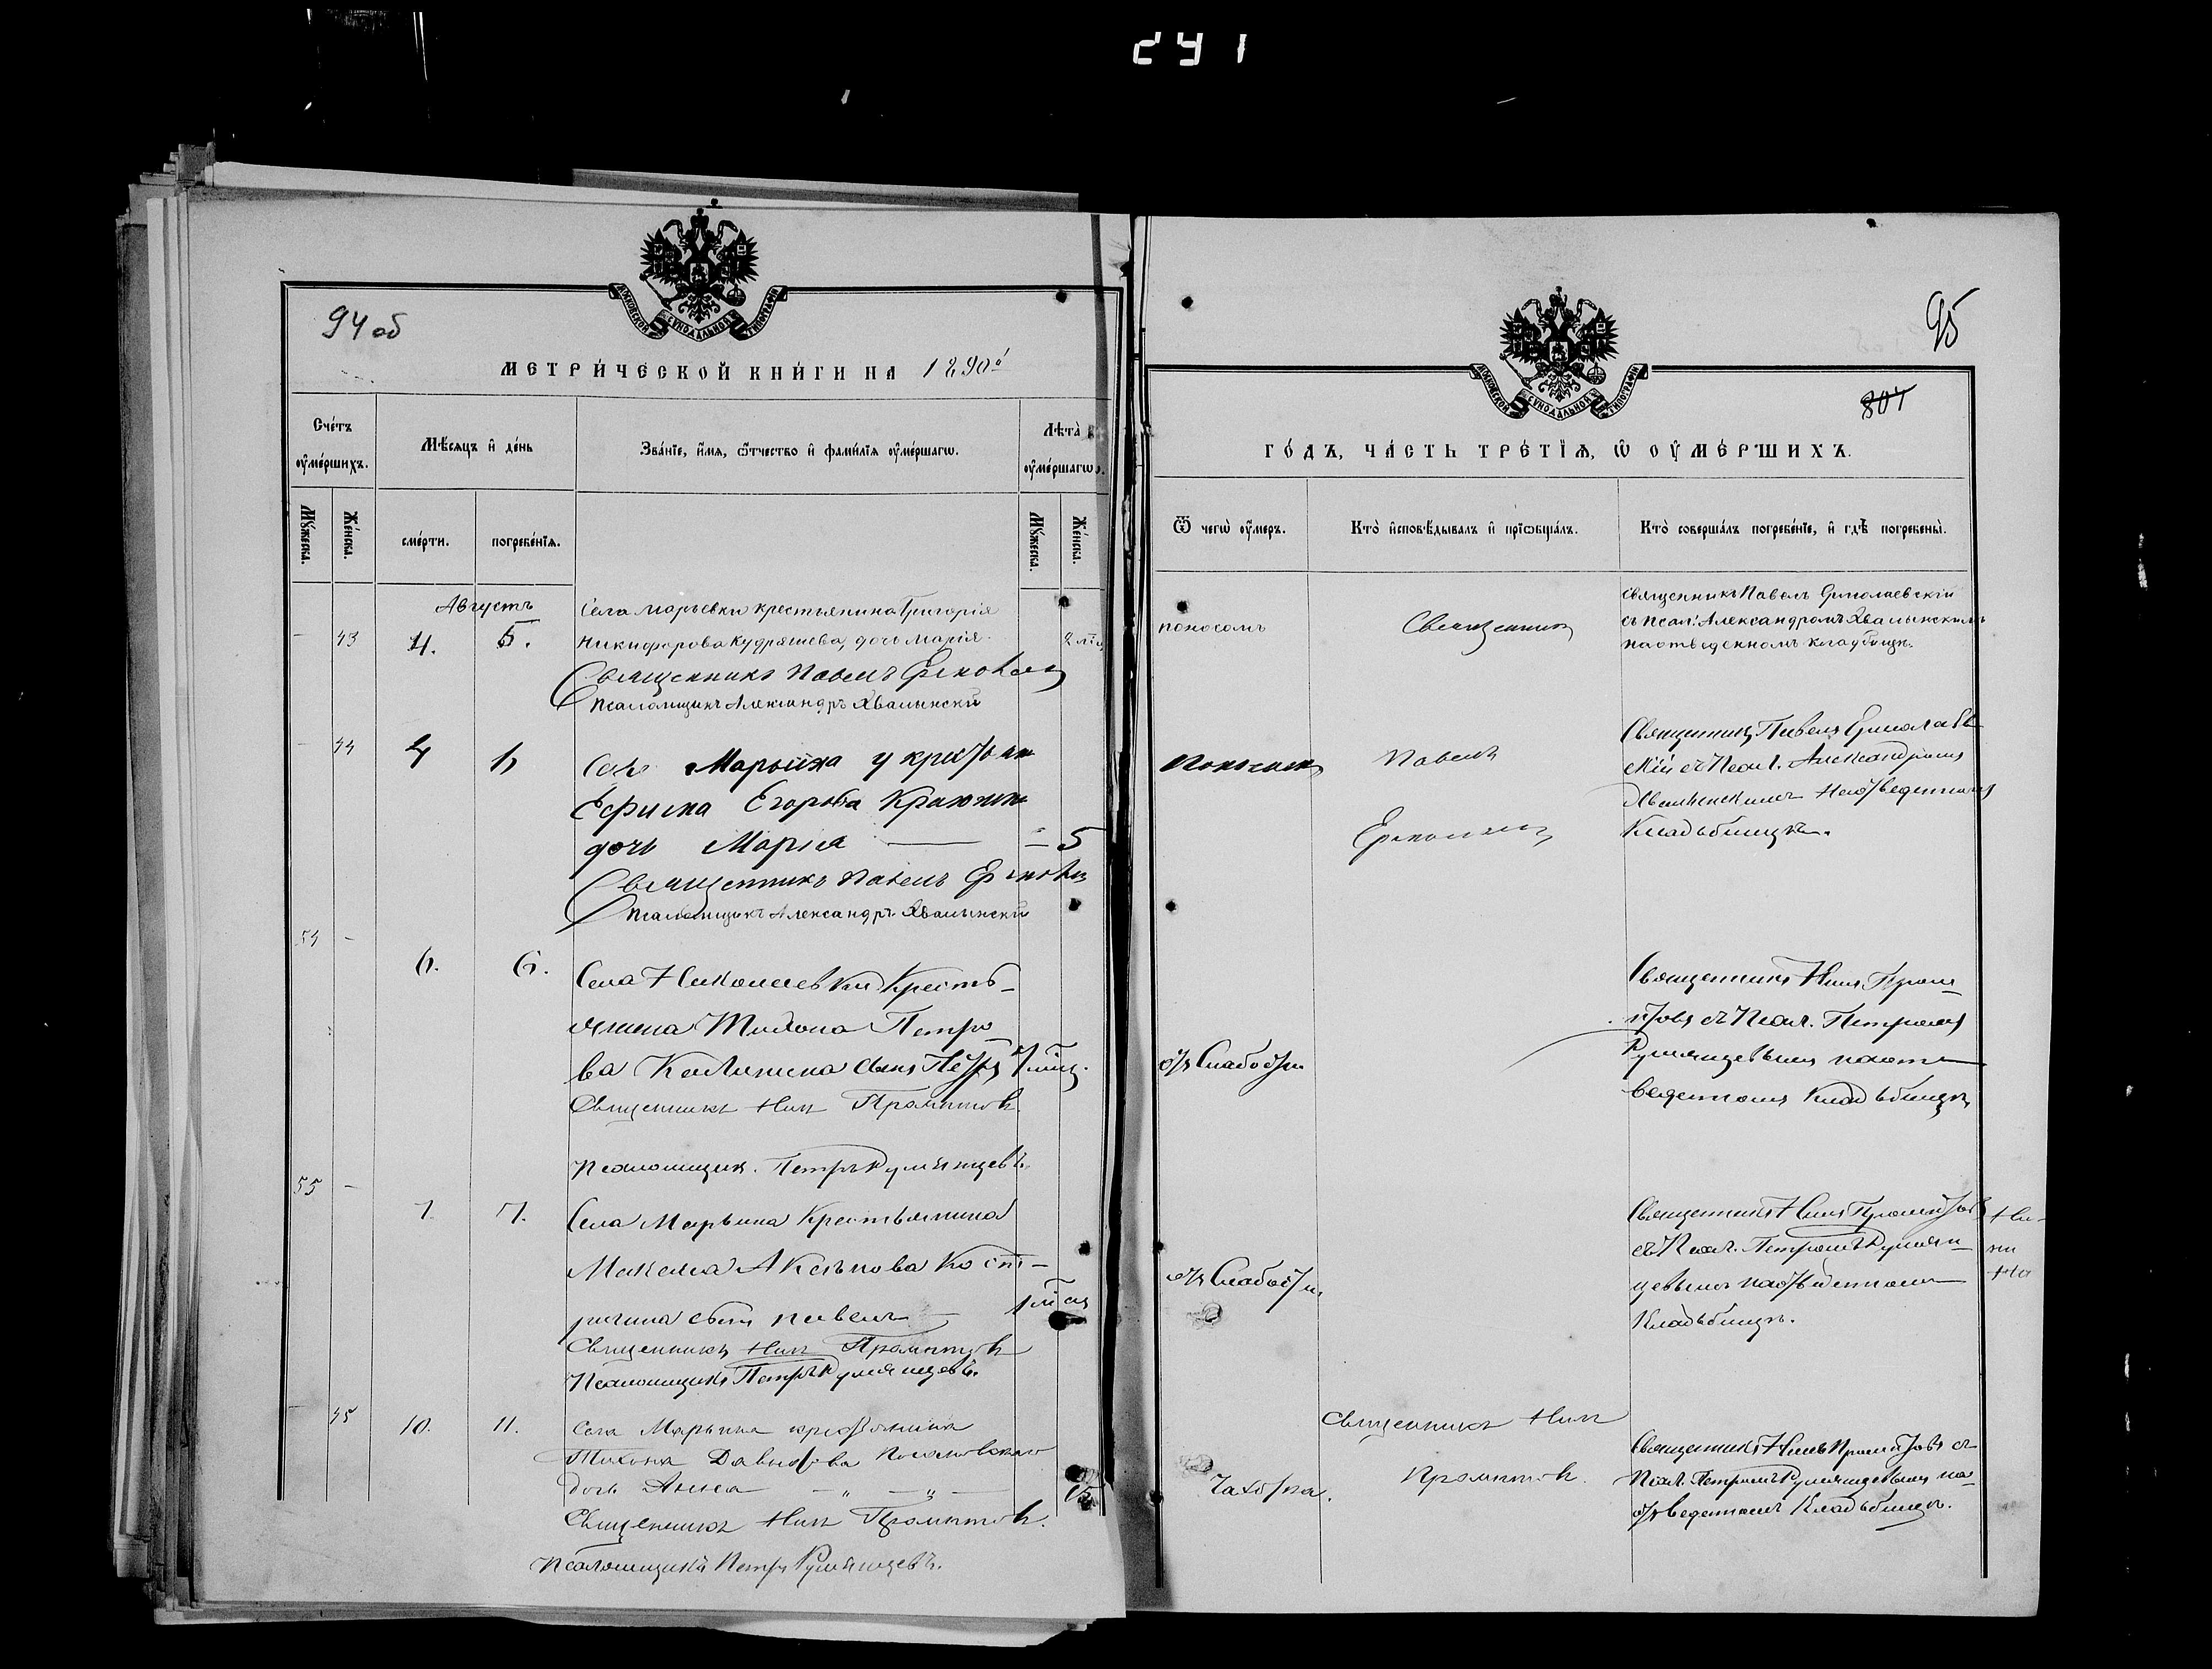 291
94 об
МОСКОВСКОЙ СѴНОДАЛЬНОЙ ТИПОГРАФІИ
МЕТРИ́ЧЕСКОЙ КНИ́ГИ НА 1890й
Сче́тъ оу҆ме́ршихъ.
Мѣ́сяцъ и҆ де́нь
Зва́нїе, и҆́мя, ѻ҆́тчество и҆ фами́лїя оу҆ме́ршагѡ.
Лѣ́та оу҆ме́ршагѡ.
Мꙋ́жеска.
Же́нска.
сме́рти.
погребе́нїя.
Мꙋ́жеска.
Же́нска.
Августъ
— 43 4. 5.
Села Марьевки крестьянина Григорія
Никифорова Кудряшева, дочь Марія. 2
Священникъ Павелъ
Псаломщикъ Александръ Хвалынскій
— 44 4 6
Ефима Егорова
дочь Марія — 5
Священникъ Павелъ
Псаломщикъ Александръ Хвалынскій
54 — 6. 6.
Села Николаевки Кресть-
янина Тихона Петро-
ва Калинина сынъ Петръ
Священникъ Нилъ Промптовъ
Псаломщик. Петръ Румянцевъ
55 — 7. 7.
Села Марьина Крестьянина
Максима Аксенова Кост-
рюгина сынъ Павелъ
Священникъ Нилъ Промптовъ
Псаломщикъ Петръ Румянцевъ.
— 45 10. 11.
Села Марьина крестьянина
Тихона Давыдова
дочь Анна — „ — „ —
Священникъ Нилъ Промптовъ.
Псаломщикъ Петръ Румянцевъ.
95
804
МОСКОВСКОЙ СѴНОДАЛЬНОЙ ТИПОГРАФІИ
ГО́ДЪ, ЧА́СТЬ ТРЕ́ТЇѦ, Ѡ҆ ОУ҆МЕ́РШИХЪ.
Ѿ чегѡ̀ оу҆́меръ.
Кто̀ и҆сповѣ́дывалъ и҆ прїѡбща́лъ.
Кто̀ соверша́лъ погребе́нїе, и҆ гдѣ̀ погребены̀.
поносомъ
Священникъ
Священникъ Павелъ Ермолаевскій
съ псал. Александромъ Хвалынскимъ
на отведенномъ кладбищѣ.
Поносомъ
Павелъ
Священникъ Павелъ Ермолаев-
скій съ Псал. Александромъ
Хвалынскимъ на отведенномъ
Кладьбищѣ.
отъ Слабости
Священникъ Нилъ Пром-
птовъ съ Псал. Петромъ
Румянцевымъ на от-
веденномъ Кладьбищѣ
отъ Слабости
Священникъ Нилъ Промптовъ
съ Псал. Петромъ Румян-
цевымъ на отведенномъ
Кладьбищѣ.
Священникъ Нилъ
Промптовъ.
Чахотка.
Священникъ Нилъ Промптовъ съ
Псал. Петромъ Румянцевымъ на
отведенномъ Кладьбищѣ.